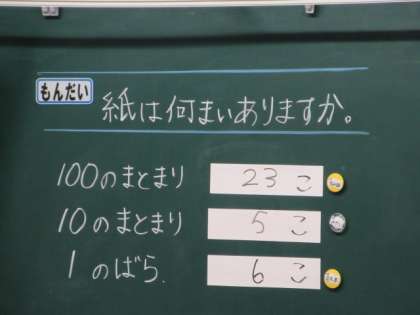 もんだい 紙は何まいありますか。
100のまとまり 23こ
10のまとまり 5こ
1のばら 6こ